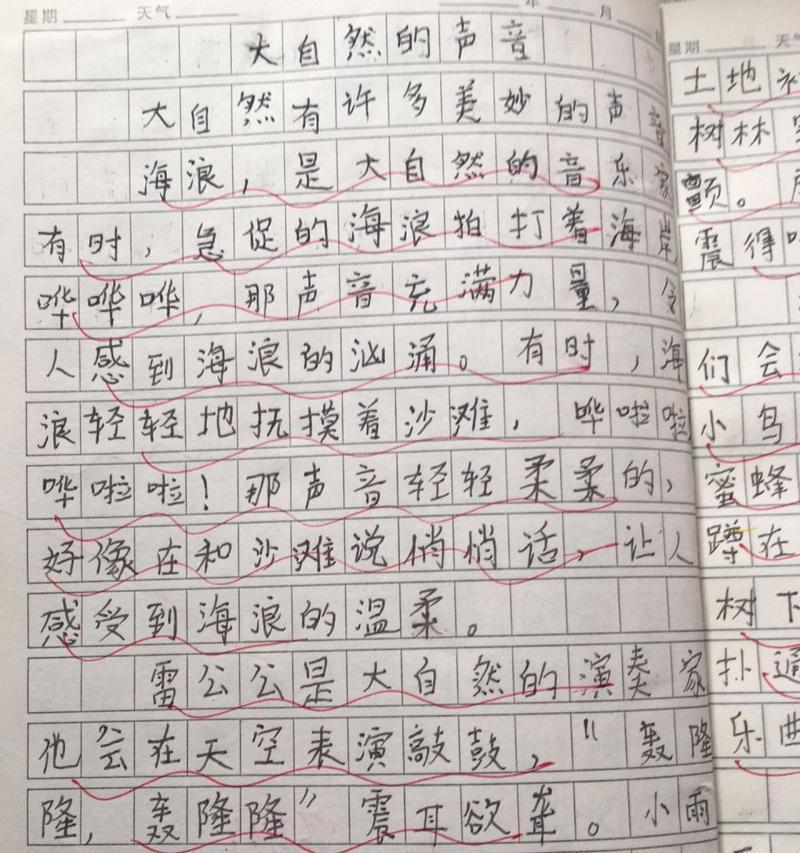 星期 天气 年 月
大自然的声音
大自然有许多美妙的声音
海浪，是大自然的音乐家
有时，急促的海浪拍打着海岸
哗哗哗，那声音充满力量，令
人感到海浪的汹涌。有时，海
浪轻轻地抚摸着沙滩，哗啦啦
哗啦啦！那声音轻轻柔柔的，
好像在和沙滩说悄悄话，让人
感受到海浪的温柔。
雷公公是大自然的演奏家
他会在天空表演敲鼓，“轰隆
隆，轰隆隆”震耳欲聋。小雨
星期 天气
土地
树林
颤。
震得
们会
小鸟
蜜蜂
蹲在
树下
扑通
乐曲